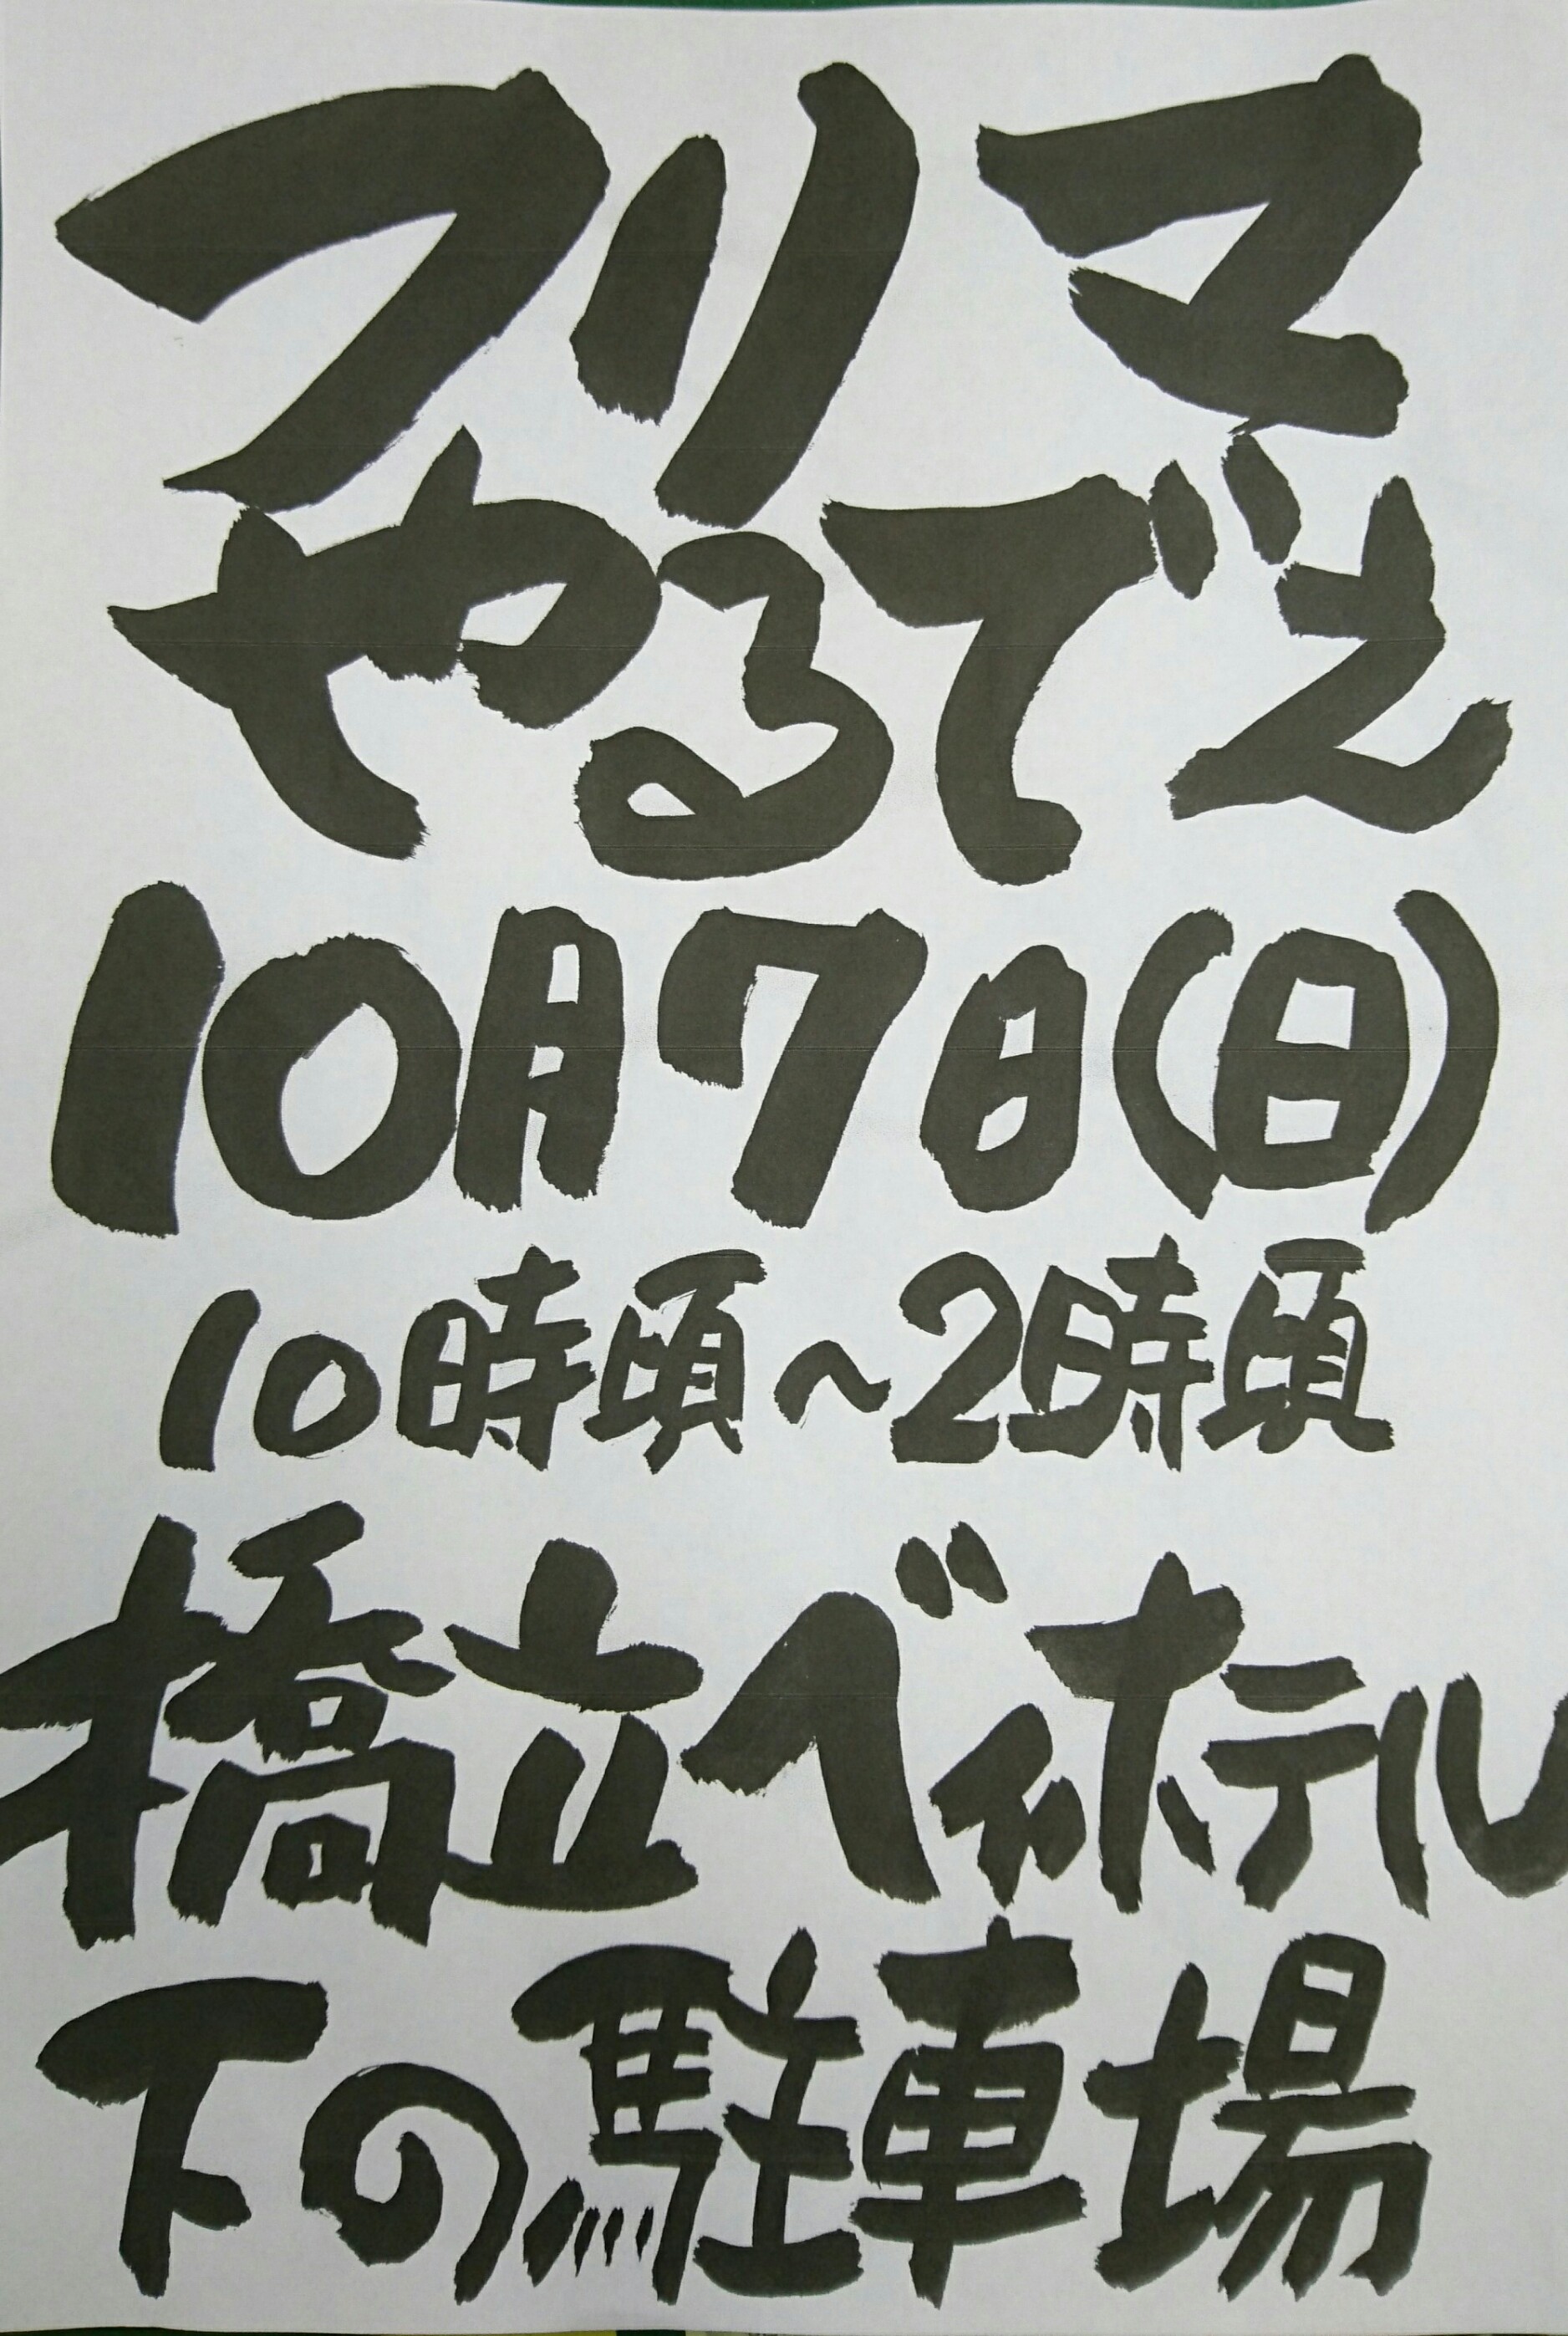 フリマ
やるでえ
10月7日(日)
10時頃~2時頃
橋立ベイホテル
下の駐車場